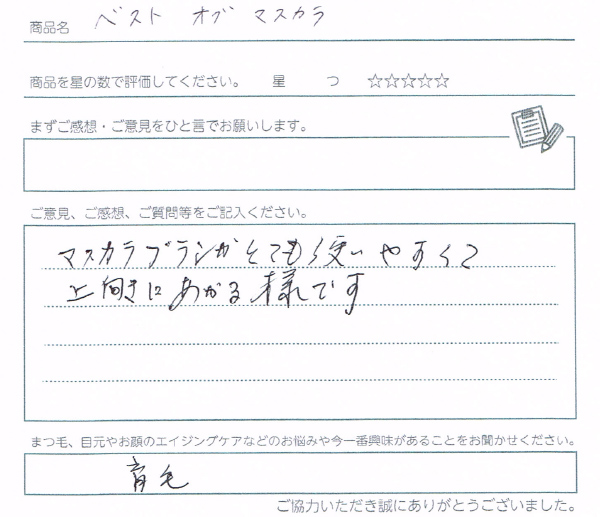 商品名 ベスト オブ マスカラ
商品を星の数で評価してください。 星 つ ☆☆☆☆☆
まずご感想・ご意見をひと言でお願いします。
ご意見、ご感想、ご質問等をご記入ください。
マスカラブラシがとても使いやすくて
上向きにあがる様です
まつ毛、目元やお顔のエイジングケアなどのお悩みや今一番興味があることをお聞かせください。
育毛
ご協力いただき誠にありがとうございました。